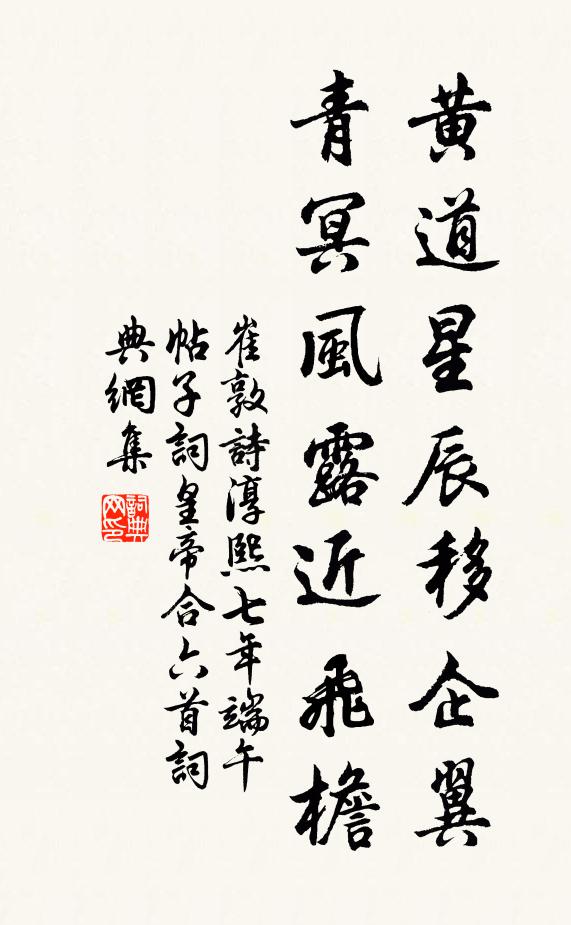 黃道星辰移企翼
青冥風露近飛檐
崔敦詩淳熙七年端午
帖子詞皇帝合六首詞
典網集
詞典
网印